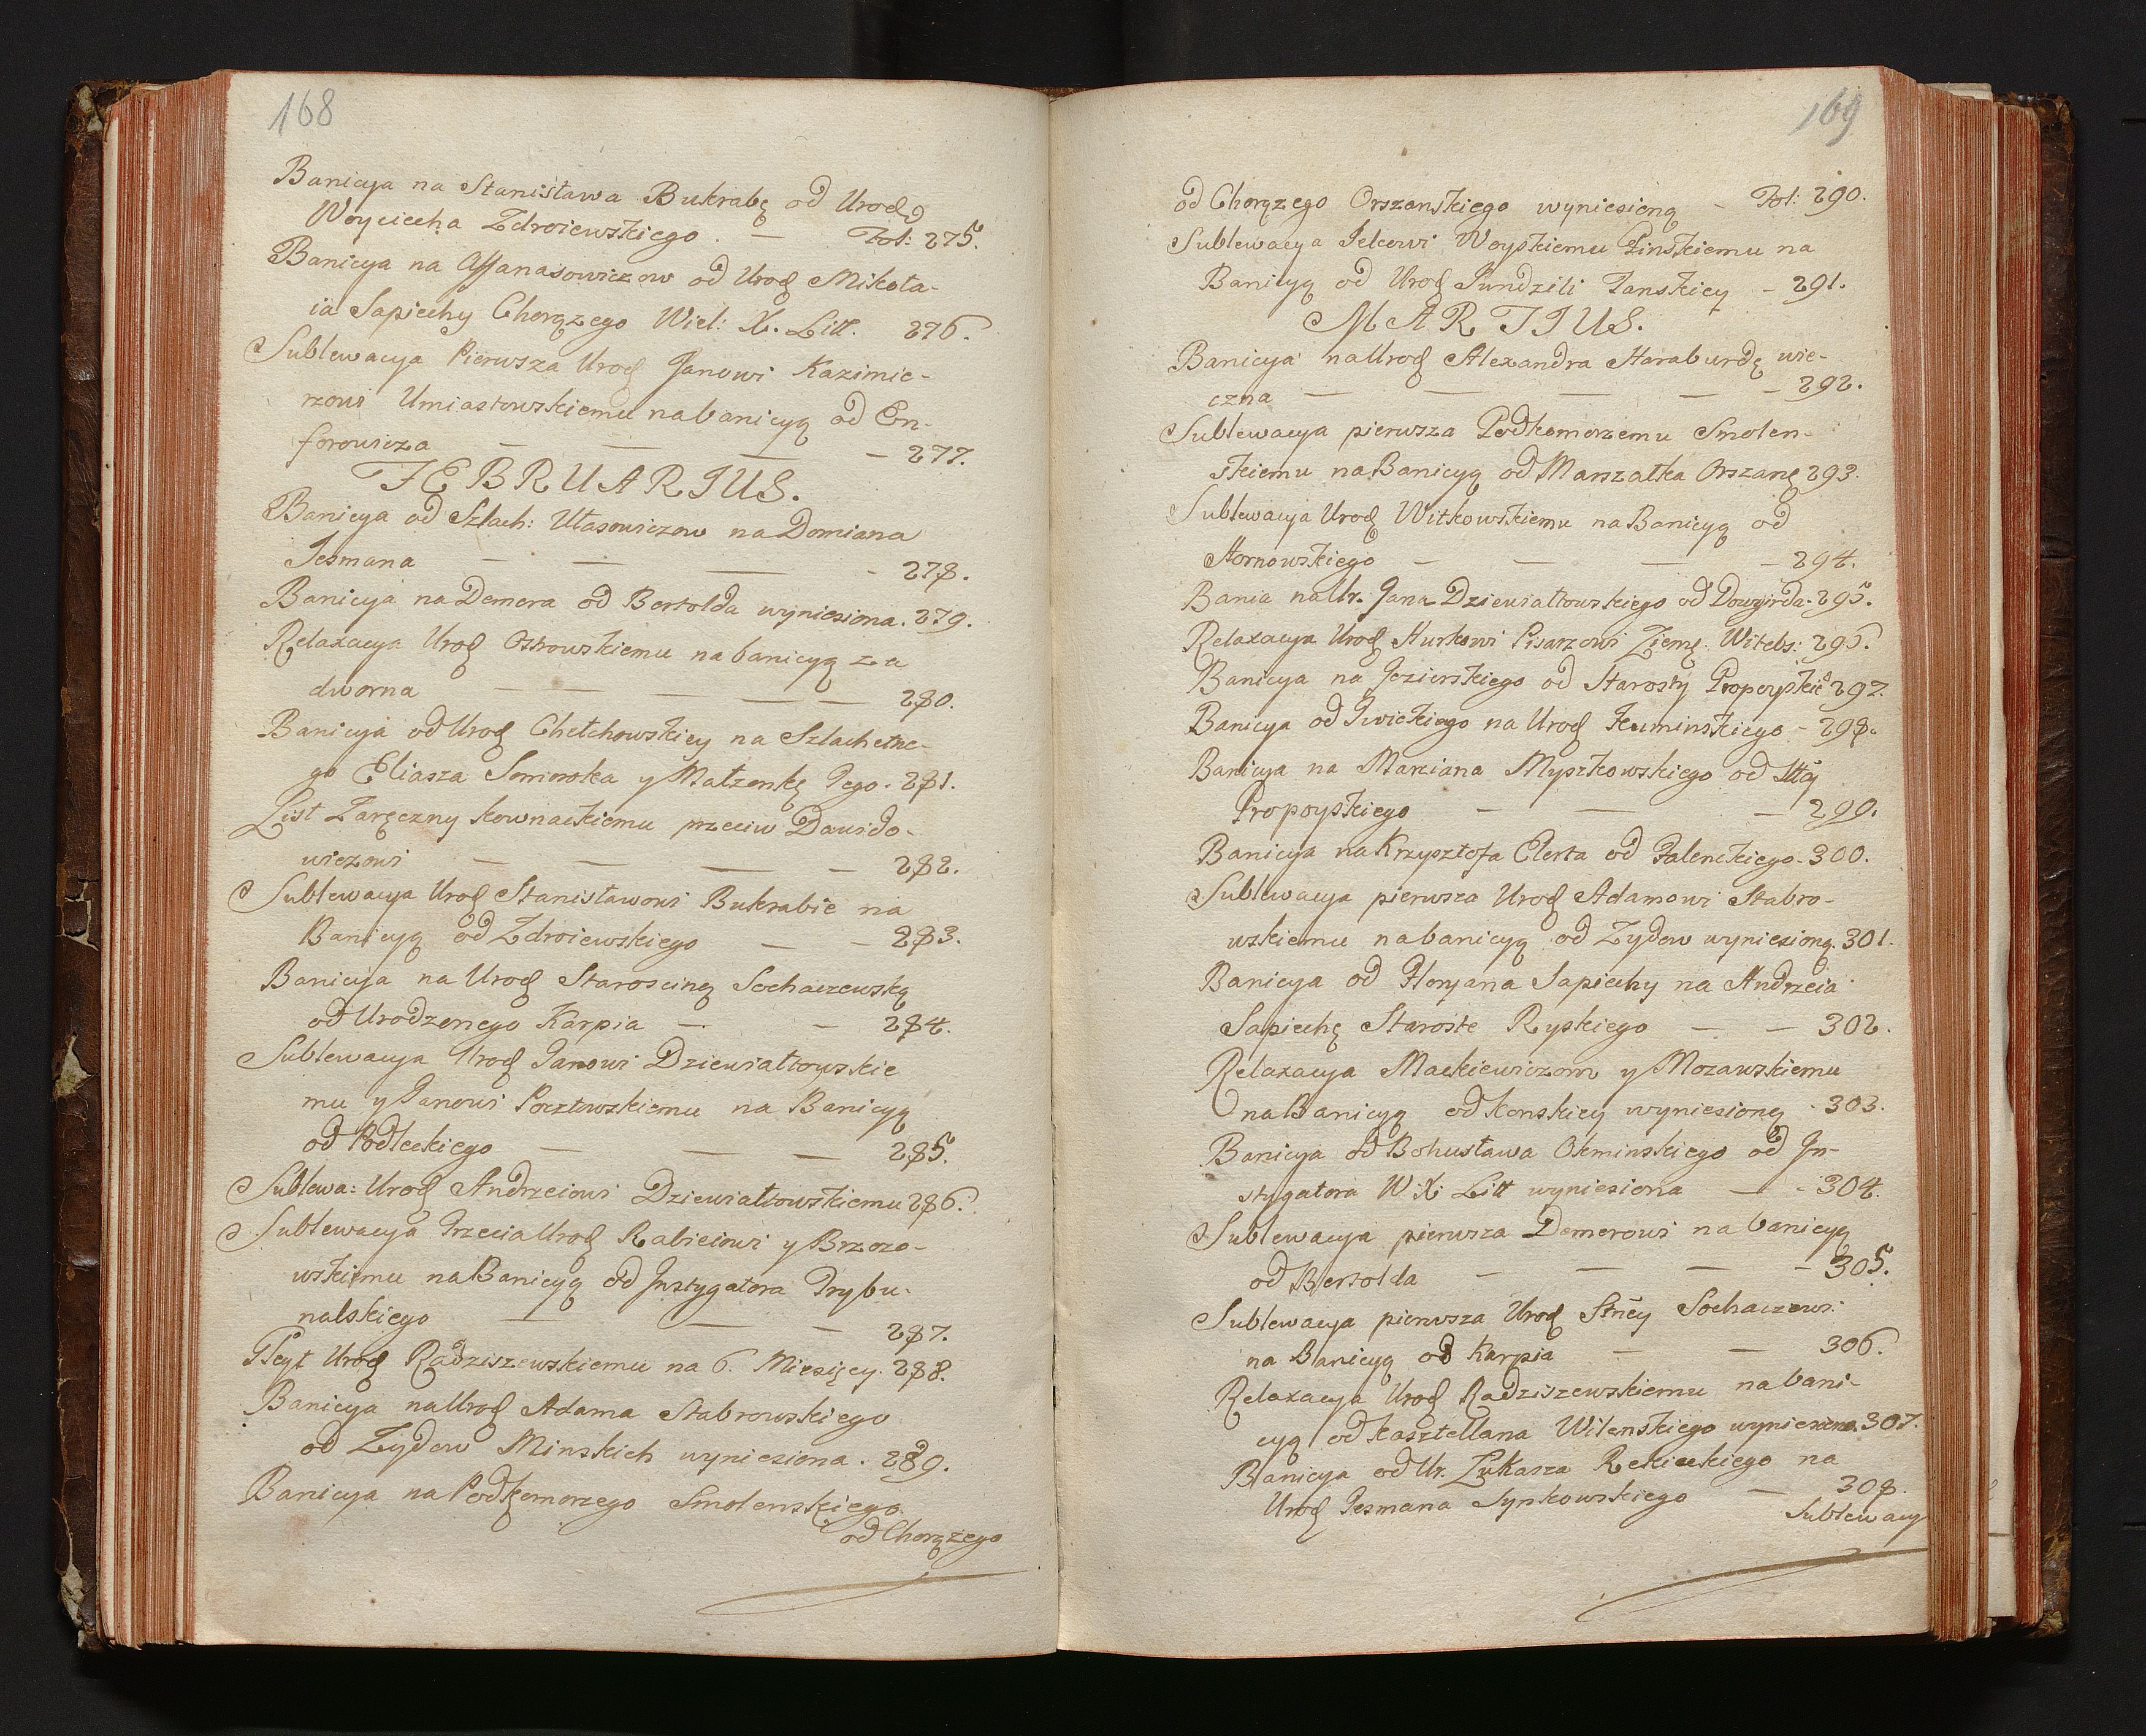 168
Banicya na Stanisława Bukrabę od Urodz
Woyciecha Zdroiewskiego. — Fol: 275.
Banicya na Affanasowiczow od Urodz Mikoła-
ia Sapiehy Chorązego Wiel: X. Litt. 276.
Sublewacya Pierwsza Urodz Janowi Kazimie-
rzowi Umiastowskiemu na banicyą od En-
forowicza — — — — 277.
FEBRUARIUS.
Banicya od Szlach: Ułasowiczow na Domiana
Jesmana — — — - 278.
Banicya na Demera od Bertolda wyniesiona. 279.
Relaxacya Urodz Ostrowskiemu na banicyą za
dworna — — — — — 280.
Banicya od Urodz Chełchowskiey na Szlachetne-
go Eliasza Somoroka y Małzonkę Jego. 281.
List Zaręczny Kownackiemu przeciw Dawido-
wiczowi — — — — 282.
Sublewacya Urodz Stanisławowi Bukrabie na
Banicyą od Zdroiewskiego — — 283.
Banicya na Urodz Starosciną Sochaczewską
od Urodzonego Karpia — - 284.
Sublewacya Urodz Janowi Dziewiałtowskie
mu y Janowi Pocztowskiemu na Banicyą
od Podleckiego — — — 285.
Sublewa: Urodz Andrzeiowi Dziewiałtowskiemu 286.
Sublewacya Trzecia Urodz Rabieiowi y Brzozo-
wskiemu na Banicyą od Instygatora Trybu-
nalskiego — — — 287.
Gleyt Urodz Radziszewskiemu na 6. Miesięcy. 288.
Banicya na Urodz Adama Stabrowskiego
od Zydow Minskich wyniesiona. 289.
Banicya na Podkomorzego Smolenskiego.
od Chorązego
169
od Chorązego Orszanskiego wyniesioną - Fol: 290.
Sublewacya Jelcowi Woyskiemu Pinskiemu na
Banicyą od Urodz Jundzili Janskiey - 291.
MARTIUS.
Banicya na Urodz Alexandra Haraburdę wie-
czna — — — — - 292.
Sublewacya pierwsza Podkomorzemu Smolen-
skiemu na Banicyą od Marszałka Orszanę 293.
Sublewacya Urodz Witkowskiemu na Banicyą od
Hornowskiego - — — - 294.
Bania na Ur. Jana Dziewiałtowskiego od Dowgirda. 295.
Relaxacya Urodz Hurkowi Pisarzowi Ziemę Witebs: 296.
Banicya na Jezierskiego od Starosty Propoyskie 297.
Banicya od Zwickiego na Urodz Kuminskiego - 298.
Banicya na Marciana Myszkowskiego od Stty
Propoyskiego — — — 299.
Banicya na Krzysztofa Elerta od Galenckiego. 300.
Sublewacya pierwsza Urodz Adamowi Stabro-
wskiemu na banicyą od Zydow wyniesioną. 301.
Banicya od Floryana Sapiehy na Andrzeia
Sapiehę Staroste Ryskiego — — 302.
Relaxacya Mackiewiczom y Mozawskiemu
na Banicyą od Konskiey wyniesioną. 303.
Banicya od Bohusława Okminskiego od In-
stygatora W. X. Litt wyniesiona — - 304.
Sublewacya pierwsza Demerowi na banicyą
od Bertolda — — — - 305.
Sublewacya pierwsza Urodz Stney Sochaczews:
na Banicyą od Karpia — — 306.
Relaxacya Urodz Radziszewskiemu na bani-
cyą od Kasztellana Wilenskiego wyniesiona. 307.
Banicya od Ur. Łukasza Rekieckiego na
Urodz Jesmana Synkowskiego — 308.
Sublewacy